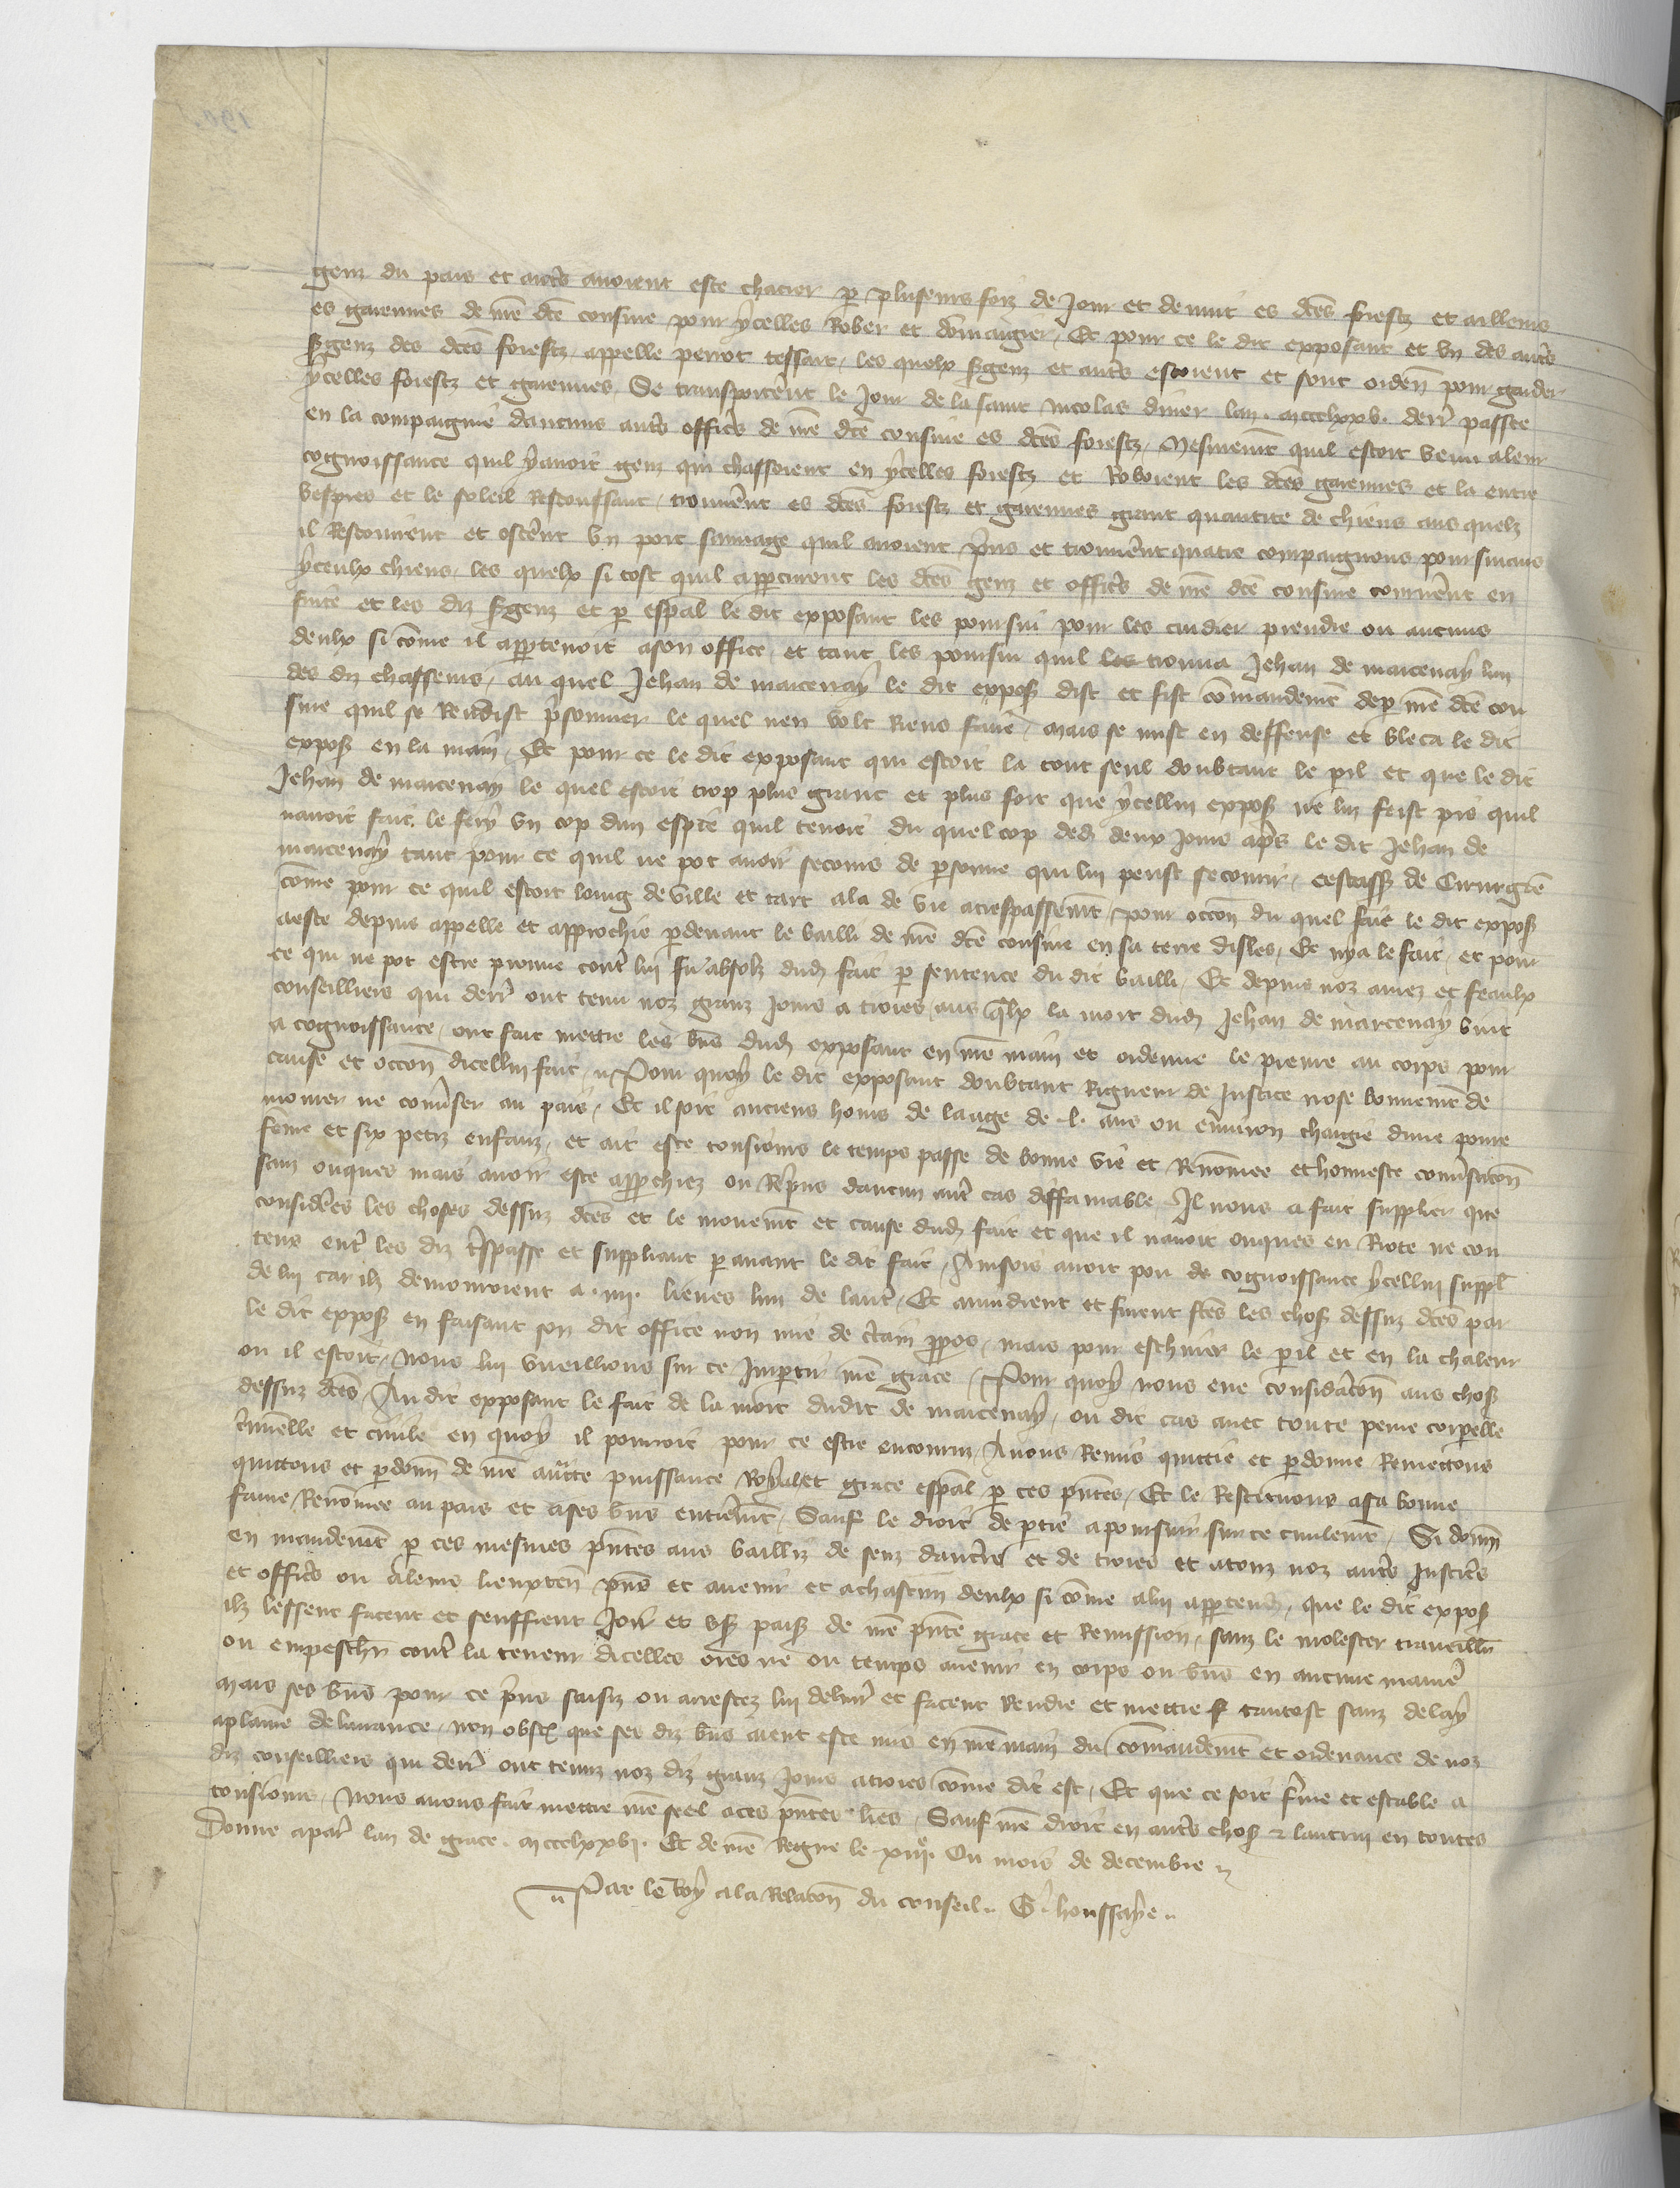 genz du pais et autrẽs auoient este chacier ꝑ pluseurs foiz de Jour et de nuit es dc̃es forestz et ailleurs
es garennes de nr̃e dc̃e cousine pour ycelles Rober et dõmaigier / Et pour ce le dit exposant et vn des autr̃s
ẜgenz des dc̃es forestz appelle perrot tessart / les quelx ẜgenz et autr̃s estoient et sont ordeñ pour garder
ycelles forestz et garennes Se transporter̃nt le Jour de la saint nicolas diuer lan mccclxxv. derr̃ passee
en la compaignie daucuns autr̃s offic̃rs de nr̃e dc̃e cousine es dc̃es forestz / Mesmemt̃ quil estoit venu a leur
cognoissance quil y auoit genz qui chassoient en ycelles forestz et Roboient les dc̃es garennes et la entre
vespres et le soleil Resconssant / trouuer̃nt es dc̃es forestz et garennes grant quantite de chiens aus quelz
il Rescouirent et oster̃nt vn porc sauuage quil auoient pr̃ns et trouuer̃nt quatre compaignons poursuians
yceulx chiens / les quelx si tost quil apperceurent les dc̃es genz et offic̃rs de nr̃e dc̃e cousine tourner̃nt en
fuite et les diz ẜgenz et ꝑ esp̃al le dit exposant les poursui pour les cuidier prendre ou aucuns
deulx si cõme il appꝑtenoit a son office / et tant les poursui quil les trouua Jehan de marcenay lun
des diz chasseurs / au quel Jehan de marcenay le dit exposꝫ dist et fist cõmandemt̃ de ꝑ nr̃e dc̃e cou
sine quil se Rendist pr̃sonnier le quel nen volt Riens faire / mais se mist en deffense et bleca le dit
exposꝫ en la main / Et pour ce le dit exposant qui estoit la tout seul doubtant le ꝑil et que le dit
Jehan de marcenay le quel estoit trop plus grant et plus fort que ycellui exposꝫ ne lui feist pis quil
nauoit fait le fery vn cop dun espie quil tenoit du quel cop dedꝫ deux Jours apr̃s le dit Jehan de
marcenay tant pour ce quil ne pot auoir secours de ꝑsonne qui lui peust secourir / cestassꝫ de Cirurgiẽ
cõme pour ce quil estoit loing de ville et tart ala de vie a trespassemt̃ / pour occoñ du quel fait le dit exposꝫ
a este depuis appelle et approchie ꝑ deuant le bailli de nr̃e dc̃e cousine en sa terre disles / Et nya le fait / et pour
ce qui ne pot estre prouue contr̃ lui fu absolz dudꝫ fait ꝑ sentence du dit bailli / Et depuis noz amez et feaulx
conseilliers qui derr̃ ont tenu noz granz Jours a troies aus q̃lx la mort dudꝫ Jehan de marcenay vint
a cognoissance / ont fait mettre les bñs dudꝫ exposant en nr̃e main et ordenne le prenre au corps pour
cause et occoñ dicellui fait / Pour quoy le dit exposant doubtant Rigueur de Justice nose bonnemt̃ de
mourer ne conuẽrser au pais / Et il soit anciens homs de laage de .l. ans ou enuiron chargie dune poure
fẽme et six petiz enfanz / et ait este tousiours le temps passe de bonne vie et Renõmee et honneste conuẽrsacoñ
sanz onques mais auoir este approchiez ou Repr̃ns daucun autr̃ cas diffamable Il nous a fait supplier que
considerẽes les choses dessuz dc̃es et le mouuemt̃ et cause dudꝫ fait et que il nauoit onques eu Riote ne con
tens entr̃ les diz tr̃spasse et suppliant ꝑ auant le dit fait / Ainsois auoit pou de cognoissance ycellui suppl̃
de lui car ilz demouroient a .iiij. lieues lun de lautr̃ / Et auindrent et furent fc̃es les chosꝫ dessuz dc̃es par
le dit exposꝫ en faisant son dit office non mie de cr̃tain ꝓpos / mais pour eschiuer le ꝑil et en la chaleur
ou il estoit / Nous lui vueillions sur ce Impꝑtir nr̃e grace / Pour quoy nous eue consideracoñ aus chosꝫ
dessuz dc̃es / Au dit exposant le fait de la mort dudit de marcenay / ou dit cas auec toute peine corporelle
cr̃minelle et ciuile en quoy il pourroit pour ce estre encouruz / Auons Remis quittie et ꝑdonne Remettons
quittons et ꝑdonñ de nr̃e autc̃te puissance Royal et grace esp̃al ꝑ ces pñtes / Et le Restituons a sa bonne
fame / Renõmee au pais et a ses bñs entierẽmt / Sauf le droit de ꝑtie a poursuir sur ce ciuilemt̃ / Si donñ
en mandemt̃ ꝑ ces mesmes pñtes aus bailliz de senz daucr̃re et de troies et a touz noz autr̃s Justic̃rs
et offic̃rs ou a leurs lieuxteñ pñs et auenir et a chascun deulx si cõme a lui appꝑtendꝫ / que le dit exposꝫ
ilz lessent facent et seuffrent Joir et vsꝫ paisꝫ de nr̃e pñte grace et Remission / sanz le molester trauaillr̃
ou empeschr̃ contr̃ la teneur dicelles ores ne ou temps auenir en corps ou bñs en aucune manier̃
Mais ses bñs pour ce pr̃ns saisiz ou arrestez lui deliurr̃ et facent Rendre et mettre tantost sanz delay
a plaine deliurance / non obstꝫ que ses diz bñs aient este mis en nr̃e main du cõmandemt̃ et ordenance de noz
diz conseilliers qui derr̃ ont tenuz noz diz granz Jours a troies cõme dit est / Et que ce soit fer̃me et estable a
tousiours / Nous auons fait mettre nr̃e seel a ces pñtes lr̃es / Sauf nr̃e droit en autr̃s chosꝫ ⁊ lautrui en toutes
Donne a parĩs lan de grace mccclxxvj. Et de nr̃e Regne le xiijᵉ. Ou mois de decembre
Par le Roy a la Relacoñ du conseil G. houssaye